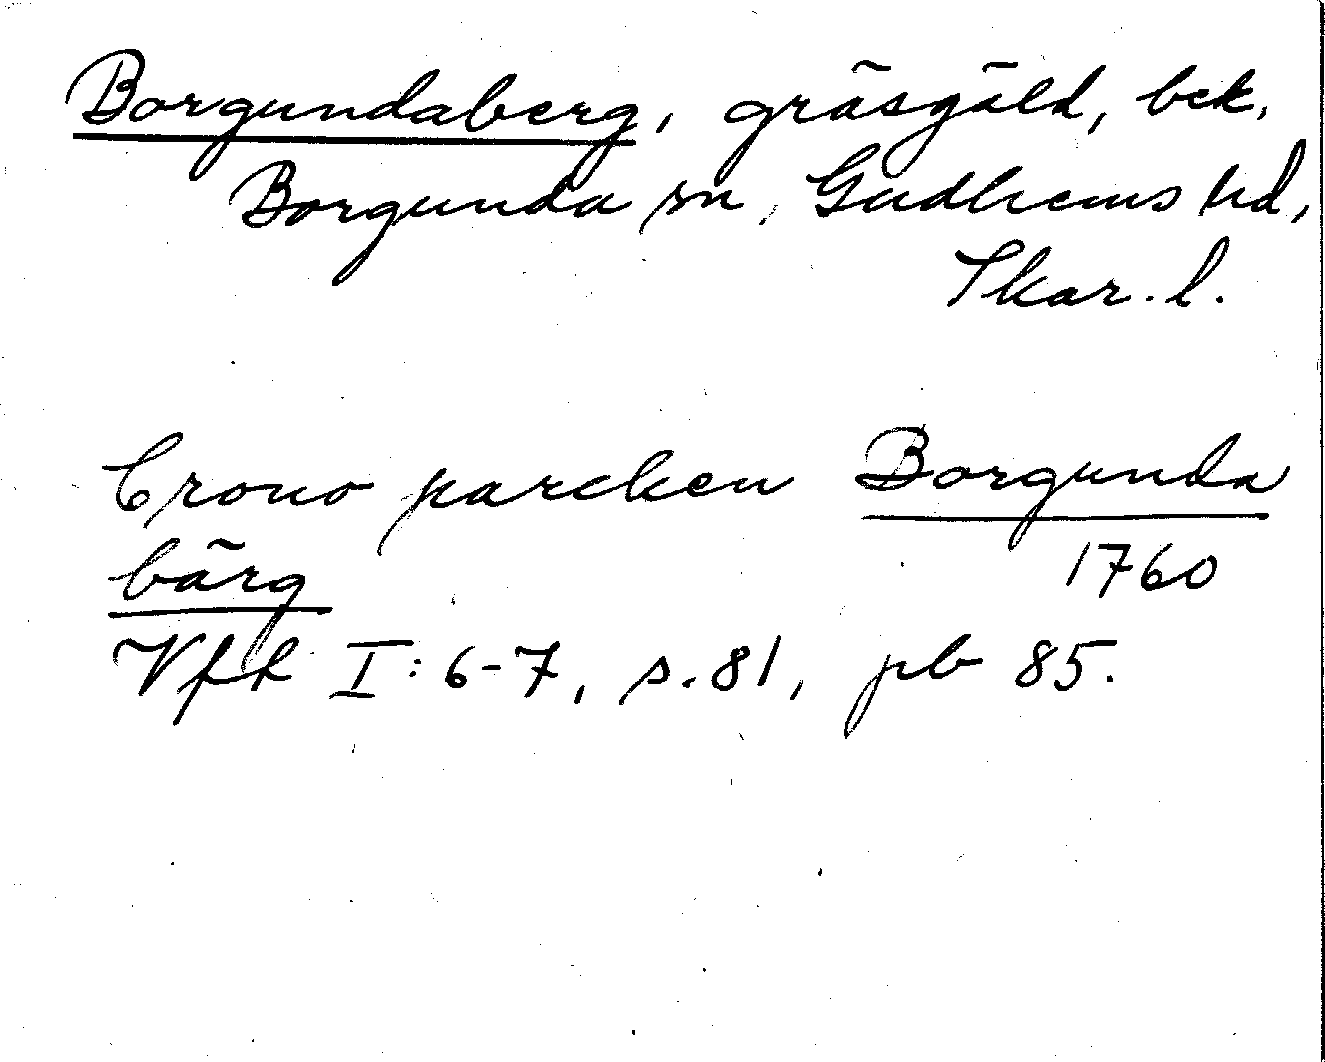 Borgundaberg, gräsgäld, bek,
Borgunda sn, Gudhems hd,
Skar. l.
Crono parcken Borgunda
bärg 1760
Vft I: 6-7, s. 81, pb 85.